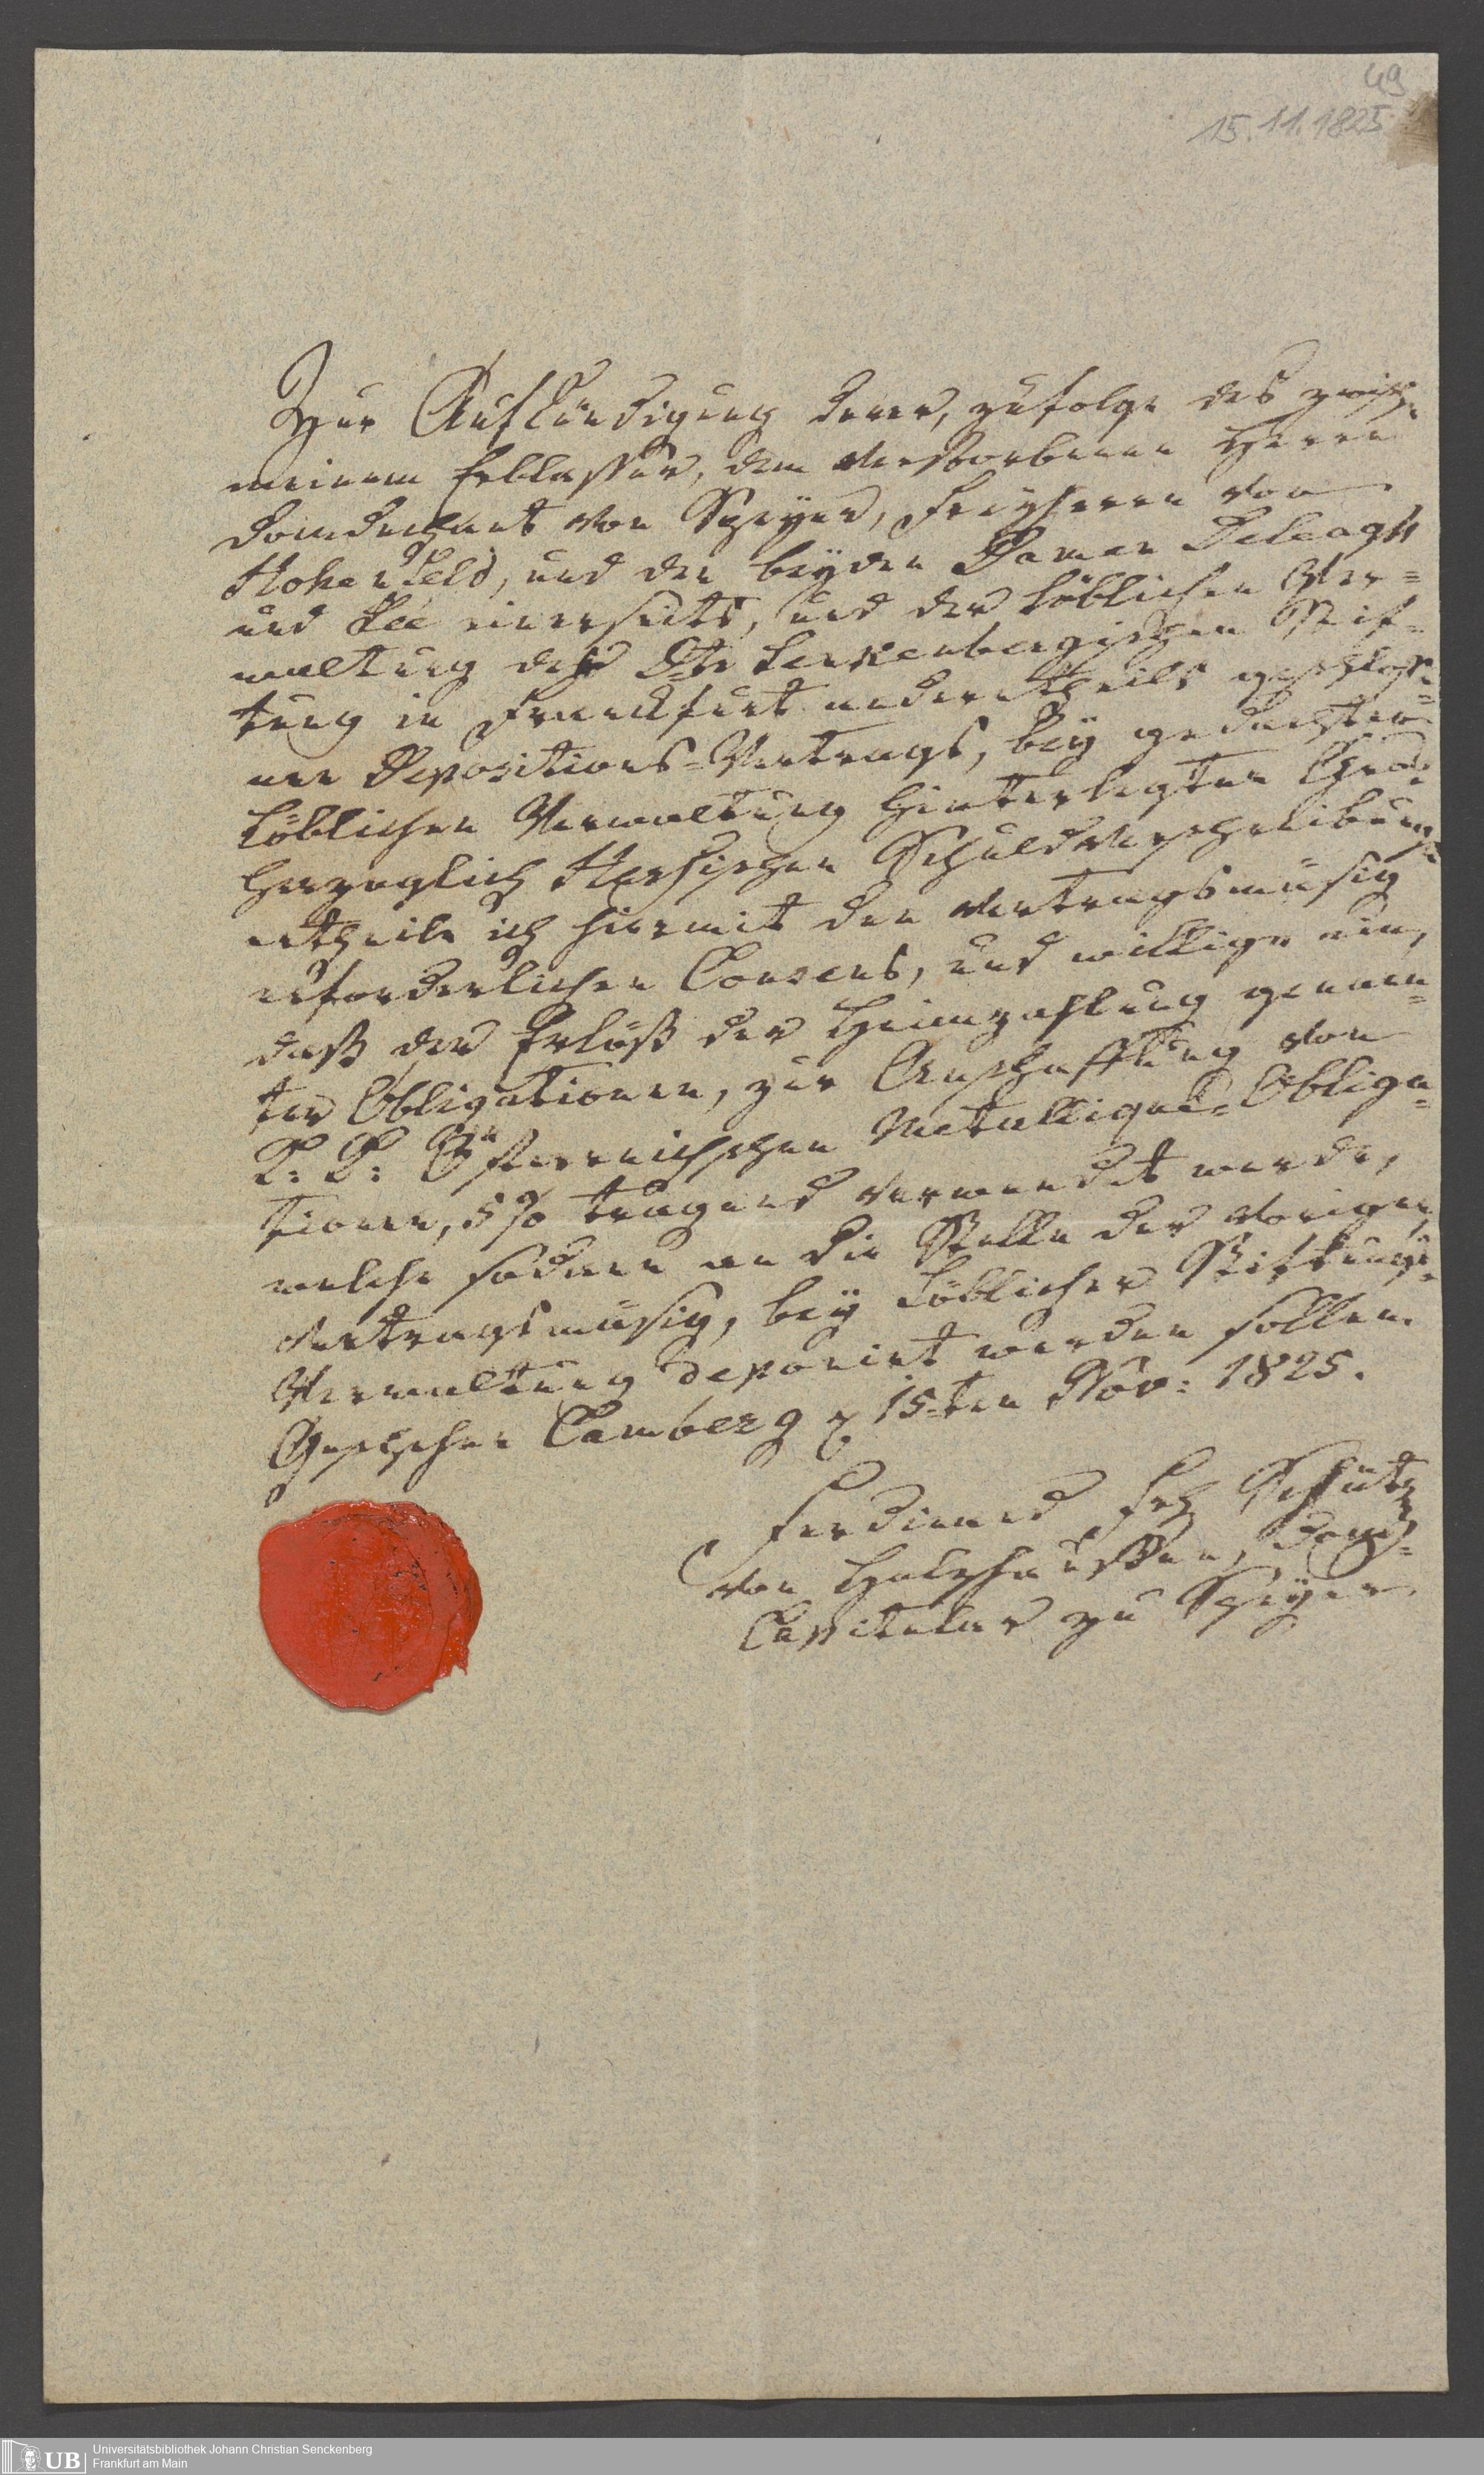 49
15.11.1825
Zur Aufkündigung derer, zufolge des zwisch.
meinem Erblasser, dem verstorbenen Herrn
Domdechant von Speyer, Freyherrn von
Hohenfeld, und den beyden Damen Deleagh
und Lee einerseits, und der löblichen Ver=
waltung der Dr. Senkenbergischen Stif=
tung in Franckfurt anderntheils geschlosse=
nen Depositions=Vertrags, bey gedachter
löblichen Verwaltung hinterlegten Gros=
herzoglich Hessischen Schuldverschreibung.
ertheile ich hiermit den vertragsmäsig
erforderlichen Consens, und willige ein,
daß der Erlöß der Heimzahlung genann=
ter Obligationen, zur Anschaffung von
K: K: Österreichschen Metallique=Obliga=
tionen, 5 % tragend verwendet werde,
welche sodann an die Stelle der vorigen,
vertragsmäsig, bey löblicher Stiftungs=
Verwaltung deponirt werden sollen.
Geschehen Camberg 15ten Nov: 1825.
Ferdinand Frh Schütz
von Holzhaussen, Dom=
Capitular zu Speyer
UB
Universitätsbibliothek Johann Christian Senckenberg
Frankfurt am Main